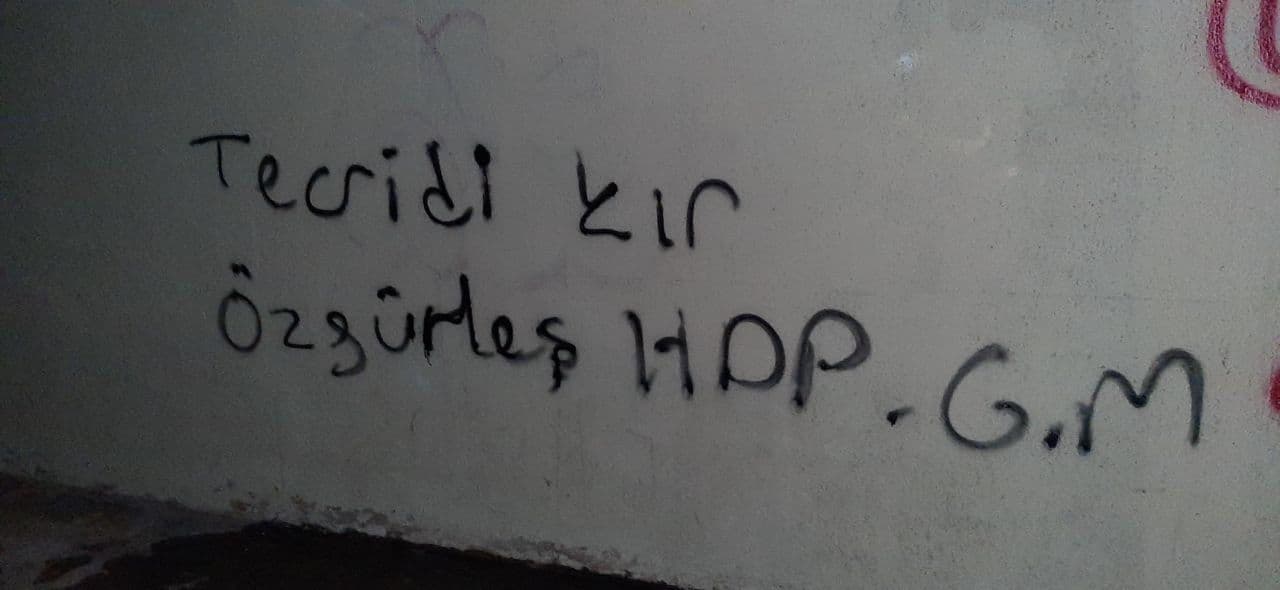 Tecridi kır
Özgürleş HDP.G.M